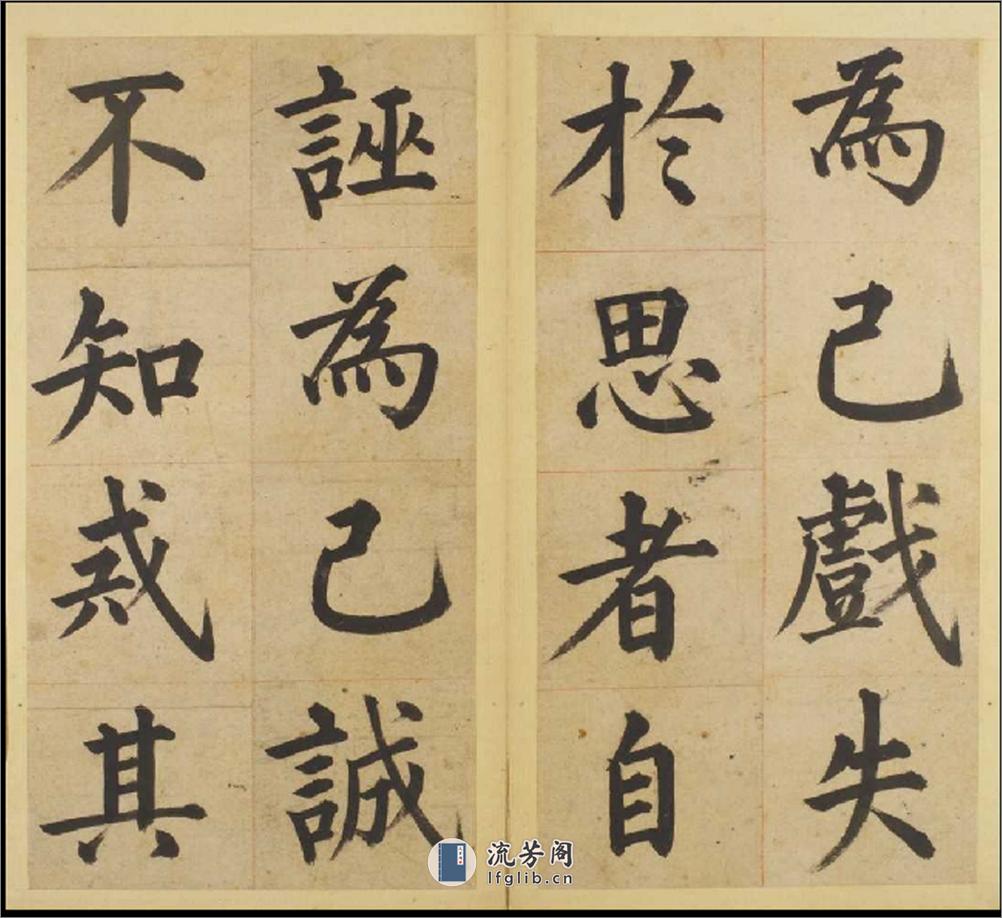 為己戲失
於思者自
誣為己誠
不知戒其
流芳阁
lfglib.cn